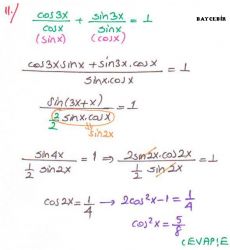 11./ cos3x/cosx + sin3x/sinx = 1 BAYCEBİR
(sinx) (cosx)
cos3x sinx + sin3x.cosx / sinx.cosx = 1
sin(3x+x) / 2/2 sinx.cosx = 1
sin2x
sin4x / 1/2 sin2x = 1 ⇒ 2sin2x.cos2x / 1/2 sin2x = 1
cos2x = 1/4 → 2cos²x-1 = 1/4
cos²x = 5/8
CEVAP:E